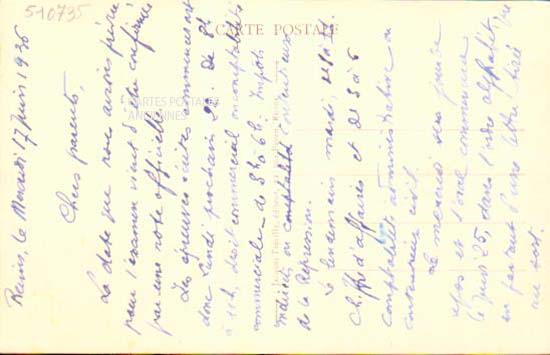 510735
CARTE POSTALE
CARTES POSTALES
ANCIENNES
Reims, le Mercredi 17 Juin 1936
Chers parents,
La date que nous avions prévue
pour l'examen vient d'être confirmée
par une note officielle.
Les épreuves écrites commencent
donc lundi prochain 22. de 8h
à 11h, droit commercial ou comptabilité
commerciale - de 3h à 6h. Impôts
indirects ou comptabilité contentieux
de la Répression.
Le lendemain mardi
Ch. d'affaires et de 3 à 6
comptabilité administrative ou
contentieux civil.
Le mercredi sera journée
repos et l'oral commencera
le jeudi 25, dans l'ordre alphabétique
en partant d'une lettre tirée
au sort.